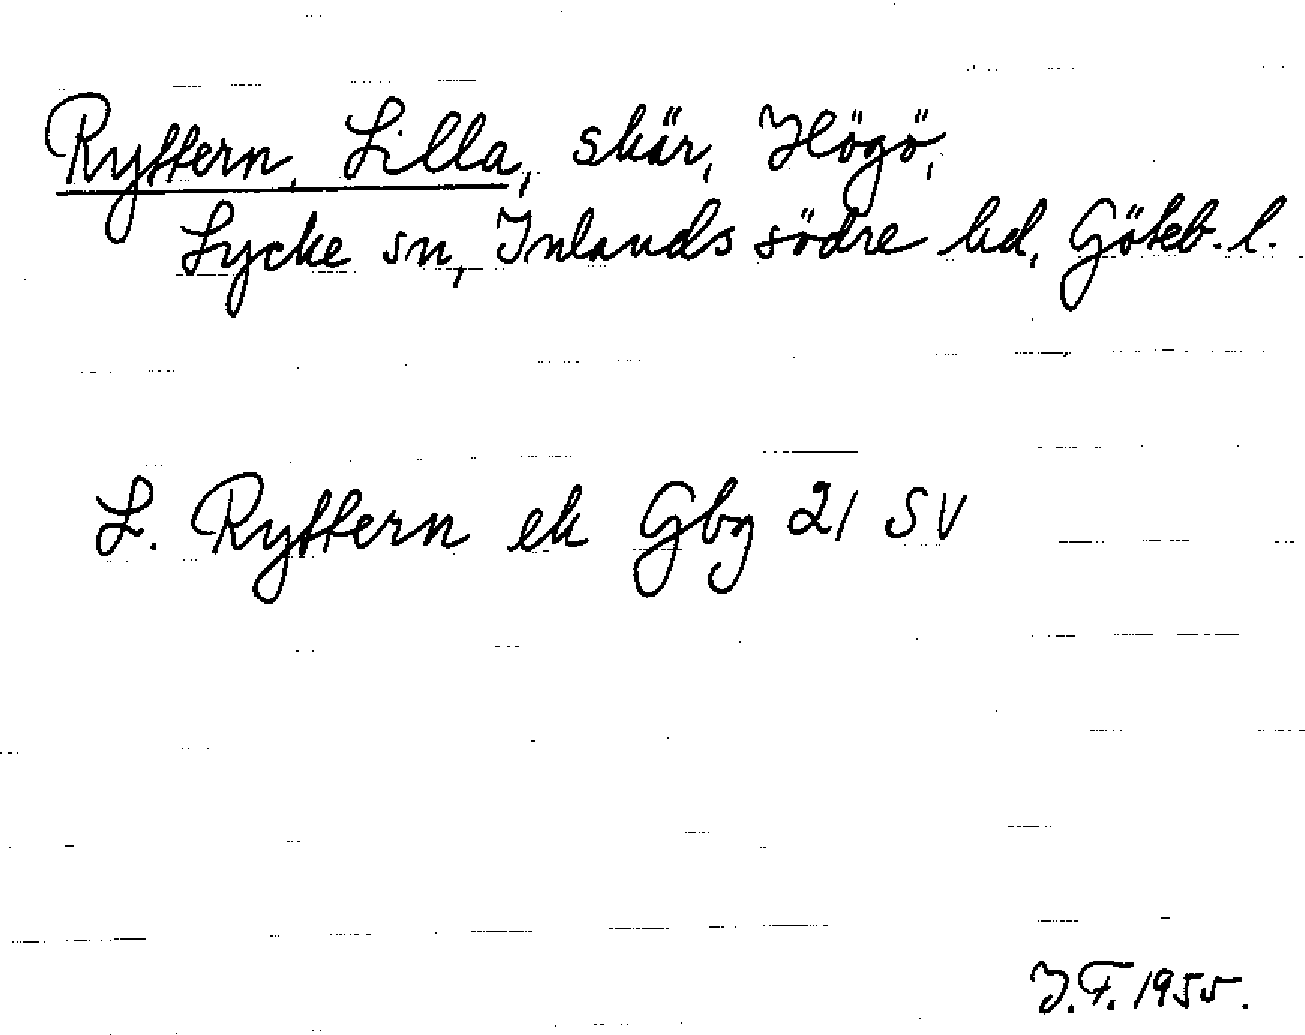 Ryttern, Lilla, skär, Högö,
Lycke sn, Inlands södre hd, Göteb. l.
L. Ryttern ek Gbg 21 SV
J.F. 1955.